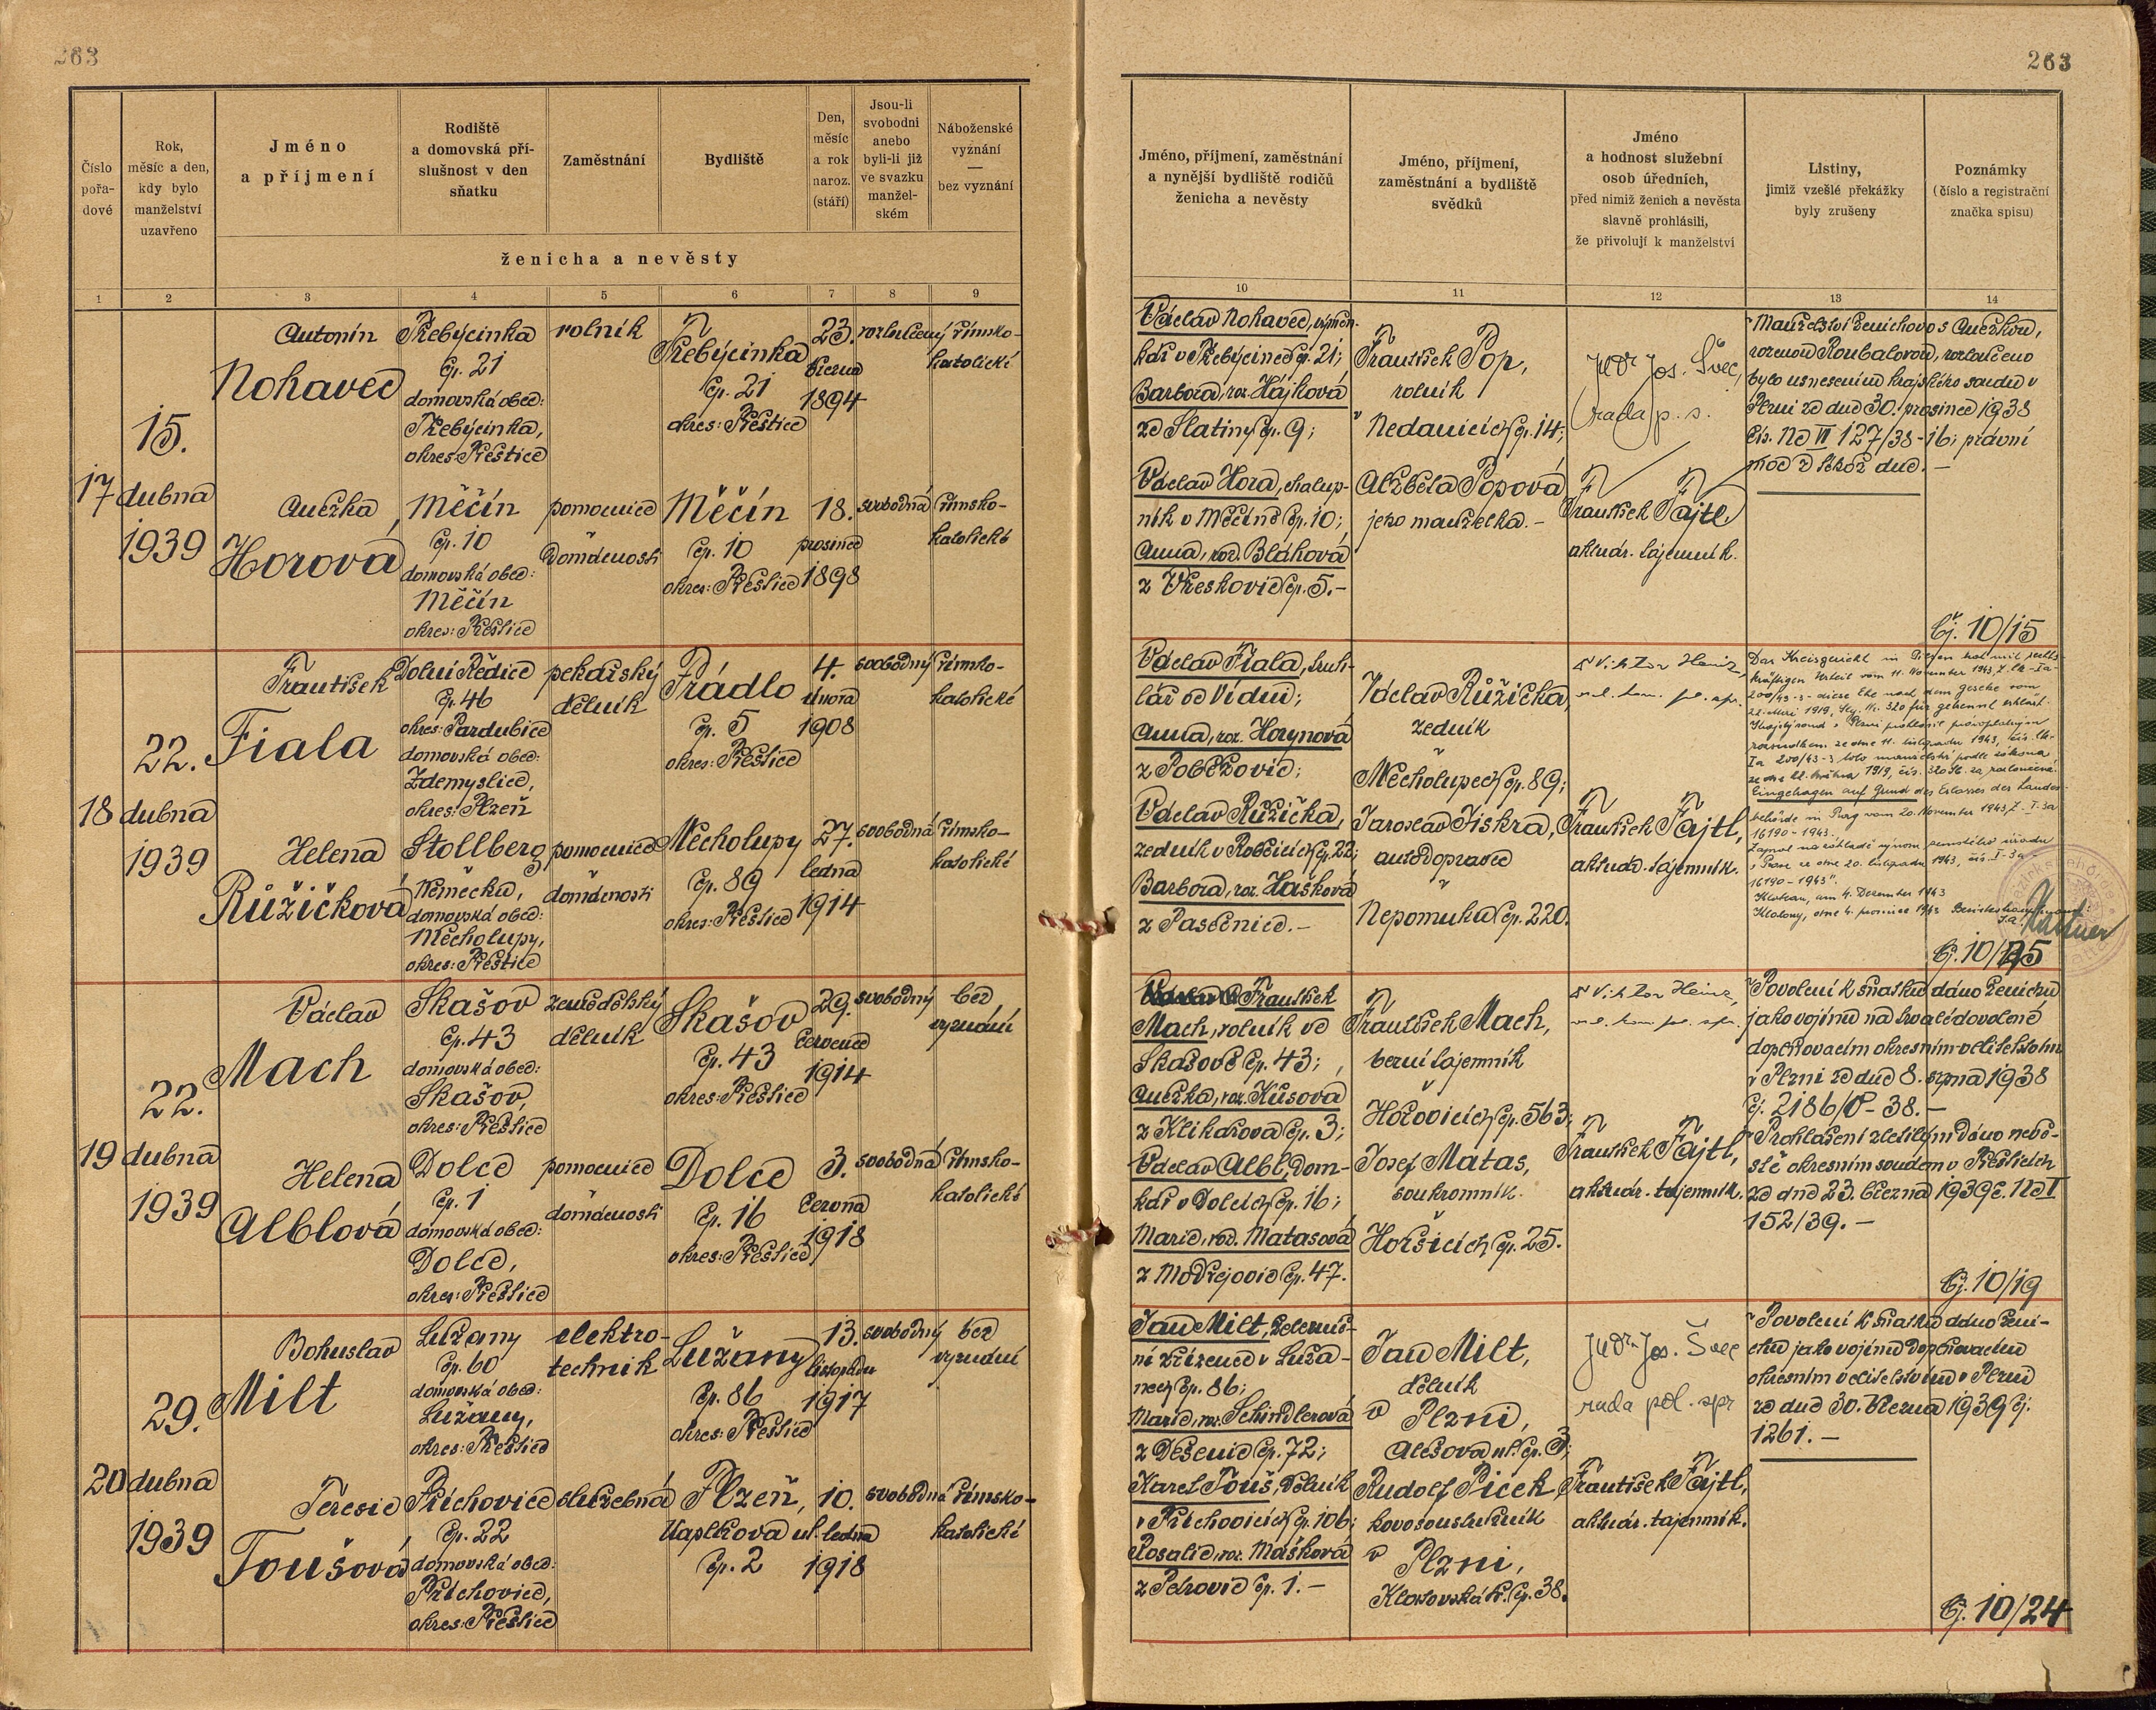 263
Číslo
pořa-
dové
Rok,
měsíc a den,
kdy bylo
manželství
uzavřeno
Jméno
a příjmení
Rodiště
a domovská pří-
slušnost v den
sňatku
Zaměstnání
Bydliště
Den,
měsíc
a rok
naroz.
(stáří)
Jsou-li
svobodni
anebo
byli-li již
ve svazku
manžel-
ském
Náboženské
vyznání
—
bez vyznání
ženicha a nevěsty
1 2 3 4 5 6 7 8 9
17
15.
dubna
1939
Antonín
Nohavec
Třebýcinka
čp. 21
domovská obec:
Třebýcinka,
okres: Přeštice
rolník
Třebýcinka
čp. 21
okres: Přeštice
23.
března
1894
rozloučený
římsko-
katolické
Anežka
Horová
Měčín
čp. 10
domovská obec:
Měčín
okres: Přeštice
pomocnice
v domácnosti
Měčín
čp. 10
okres: Přeštice
18.
prosince
1898
svobodná
římsko-
katolické
18
22.
dubna
1939
František
Fiala
Dolní Ředice
čp. 46
okres: Pardubice
domovská obec:
Zdemyslice,
okres: Plzeň
pekařský
dělník
Prádlo
čp. 5
okres: Přeštice
4.
února
1908
svobodný
římsko-
katolické
Helena
Růžičková
Stollberg
Německo,
domovská obec:
Měcholupy,
okres: Přeštice
pomocnice
v domácnosti
Měcholupy
čp. 89
okres: Přeštice
27.
ledna
1914
svobodná
římsko-
katolické
19
22.
dubna
1939
Václav
Mach
Skašov
čp. 43
domovská obec:
Skašov,
okres: Přeštice
zemědělský
dělník
Skašov
čp. 43
okres: Přeštice
29.
července
1914
svobodný
bez
vyznání
Helena
Alblová
Dolce
čp. 1
domovská obec:
Dolce,
okres: Přeštice
pomocnice
v domácnosti
Dolce
čp. 16
okres: Přeštice
3.
června
1918
svobodná
římsko-
katolické
20
29.
dubna
1939
Bohuslav
Milt
Lužany
čp. 60
domovská obec:
Lužany,
okres: Přeštice
elektro-
technik
Lužany
čp. 86
okres: Přeštice
13.
listopadu
1917
svobodný
bez
vyznání
Terezie
Toušová
Příchovice
čp. 22
domovská obec:
Příchovice,
okres: Přeštice
služebná
Plzeň,
ul.
čp. 2
10.
ledna
1918
svobodná
římsko-
katolické
263
Jméno, příjmení, zaměstnání
a nynější bydliště rodičů
ženicha a nevěsty
Jméno, příjmení,
zaměstnání a bydliště
svědků
Jméno
a hodnost služební
osob úředních,
před nimiž ženich a nevěsta
slavně prohlásili,
že přivolují k manželství
Listiny,
jimiž vzešlé překážky
byly zrušeny
Poznámky
(číslo a registrační
značka spisu)
10 11 12 13 14
Václav Nohavec, výměn-
kář v Třebýcince čp. 21;
Barbora, roz. Hájková
ze Slatiny čp. 9;
Václav Hora, chalup-
ník v Měčíně čp. 10;
Anna, roz. Bláhová
z Vřeskovic čp. 5.-
František Pop,
rolník
v Nedanicích čp. 14;
Alžběta Popová
jeho manželka. -
JUDr Jos. Švec,
rada p. s.
František Fajtl
aktuár. tajemník.
Manželství ženichovo s Anežkou,
rozenou Roubalovou, rozloučeno
bylo usnesením krajského soudu v
Plzni ze dne 30. prosince 1938
čís. Nc VI 127/38-16; právní
moc z téhož dne. -
Čj. 10/15
Václav Fiala, truh-
lář ve Vídni;
Anna, roz. Horynová
z Poběžovic;
Václav Růžička,
zedník v Robčicích čp. 22;
Barbora, roz. Hašková
z Pasečnice. -
Václav Růžička,
zedník
v Měcholupech čp. 89;
Jaroslav Jiskra,
autodopravce
v Nepomuku čp. 220.
Viktor Heinz,
František Fajtl,
aktuár. tajemník.
Das Kreisgericht in Pilsen hat mit rechts-
kräftigen Urteil vom 11. November 1943, Z. Ck-Ia
200/43-3 - diese Ehe nach dem Gesetze vom
22. Mai 1919, Slg. Nr. 320 für getrennt erklärt.
Krajský soud v Plzni prohlásil pravoplatným
rozsudkem ze dne 11. listopadu 1943, čís. Ck-
Ia 200/43-3 toto manželství podle zákona
ze dne 22. května 1919, čís. 320 Sb. za rozloučené.
Eingetragen auf Grund des Erlasses der Landes-
behörde in Prag vom 20. November 1943, Z. I-3a
16190-1943.
Zapsal na základě výnosu zemského úřadu
v Praze ze dne 20. listopadu 1943, čís. I-3a
16190-1943".
Klattau, am 4. Dezember 1943
Klatovy, dne 4. prosince 1943 Bezirkshauptmann:
Čj. 10/15
František
Mach, rolník ve
Skašově čp. 43;
Anežka, roz. Kůsová
z Klikařova čp. 3;
Václav Albl, dom-
kář v Dolcích čp. 16;
Marie, roz. Matasová
z Modřejovic čp. 47.
František Mach,
berní tajemník
v Hořovicích čp. 563;
Josef Matas,
soukromník.
v Horšicích čp. 25.
Viktor Heinz,
František Fajtl,
aktuár. tajemník.
Povolení k sňatku dáno ženichu
jako vojínu na trvalé dovolené
doplňovacím okresním velitelstvím
v Plzni ze dne 8. srpna 1938
čj. 2186/V-38. -
Prohlášení zletilým dáno nevě-
stě okresním soudem v Přešticích
ze dne 23. března 1939 č. Nc I
152/39. -
Čj. 10/19
Jan Milt, železnič-
ní zřízenec v Luža-
nech čp. 86;
Marie, roz. Schindlerová
z Dešenic čp. 72;
Karel Touš, dělník
v Příchovicích čp. 106;
Rosalie, roz. Mašková
z Petrovic čp. 1. -
Jan Milt,
dělník
v Plzni,
Alešova ul. čp. 3;
Rudolf Picek
kovosoustružník
v Plzni,
Klatovská tř. čp. 38.
JUDr Jos. Švec
rada pol. spr
František Fajtl,
aktuár. tajemník.
Povolení k sňatku dáno ženi-
chu jako vojínu doplňovacím
okresním velitelstvím v Plzni
ze dne 30. března 1939 čj.
1261. -
Čj. 10/24